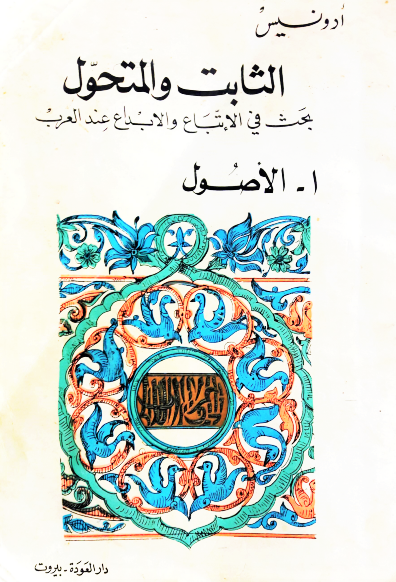 أدونيس
الثابت والمتحوّل
بحث في الإتّباع والإبداع عند العرب
١ - الأصول
دار العودة - بيروت